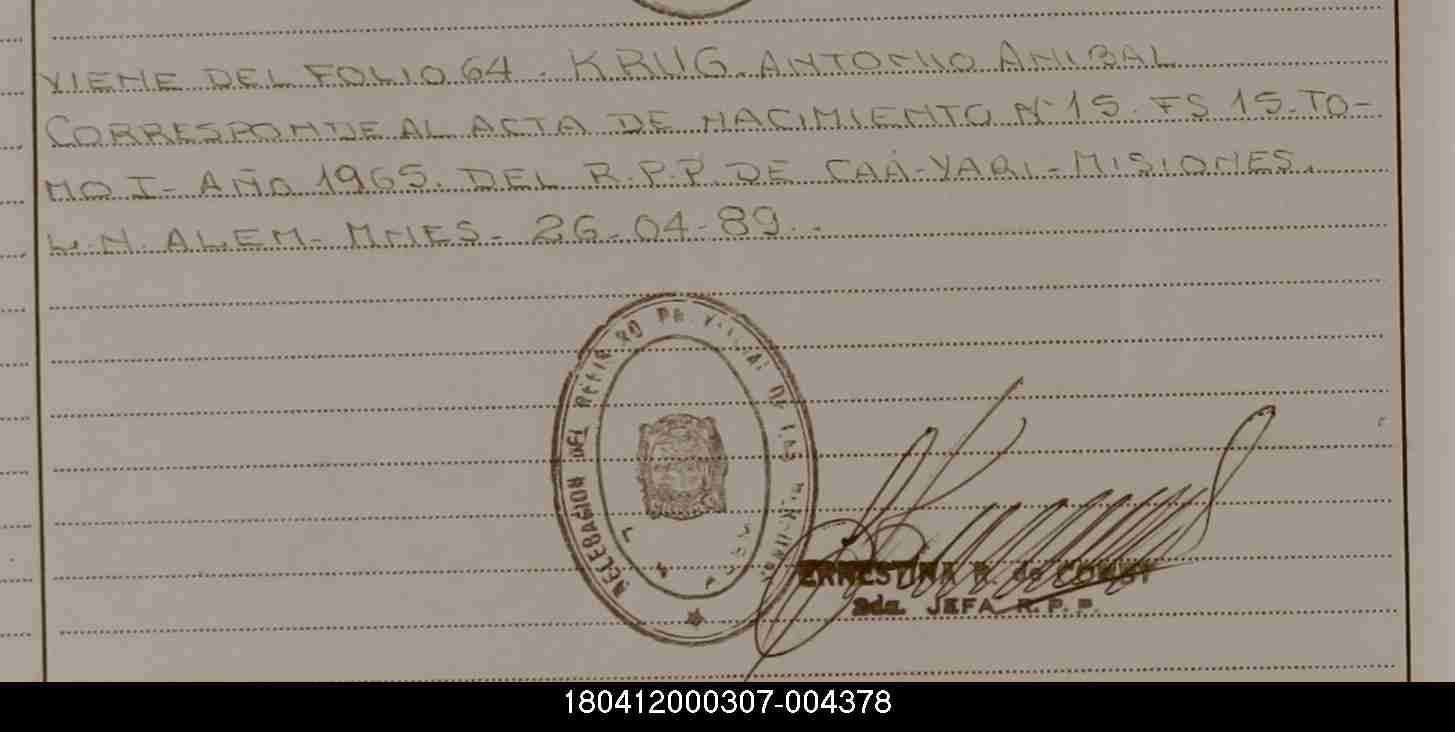 VIENE DEL FOLIO 64 - KRUG ANTONIO ANIBAL
CORRESPONDE AL ACTA DE NACIMIENTO Nº 15. FS 15. TO-
MO I- AÑO 1965. DEL R.P.P DE CAÁ-YARI-MISIONES.
L.N. ALEM- MNES- 26-04-89.-
DELEGACION DEL REGISTRO PROVINCIAL DE LAS PERSONAS
L. N. ALEM
ERNESTINA R. de
2da. JEFA R.P.P.
180412000307-004378